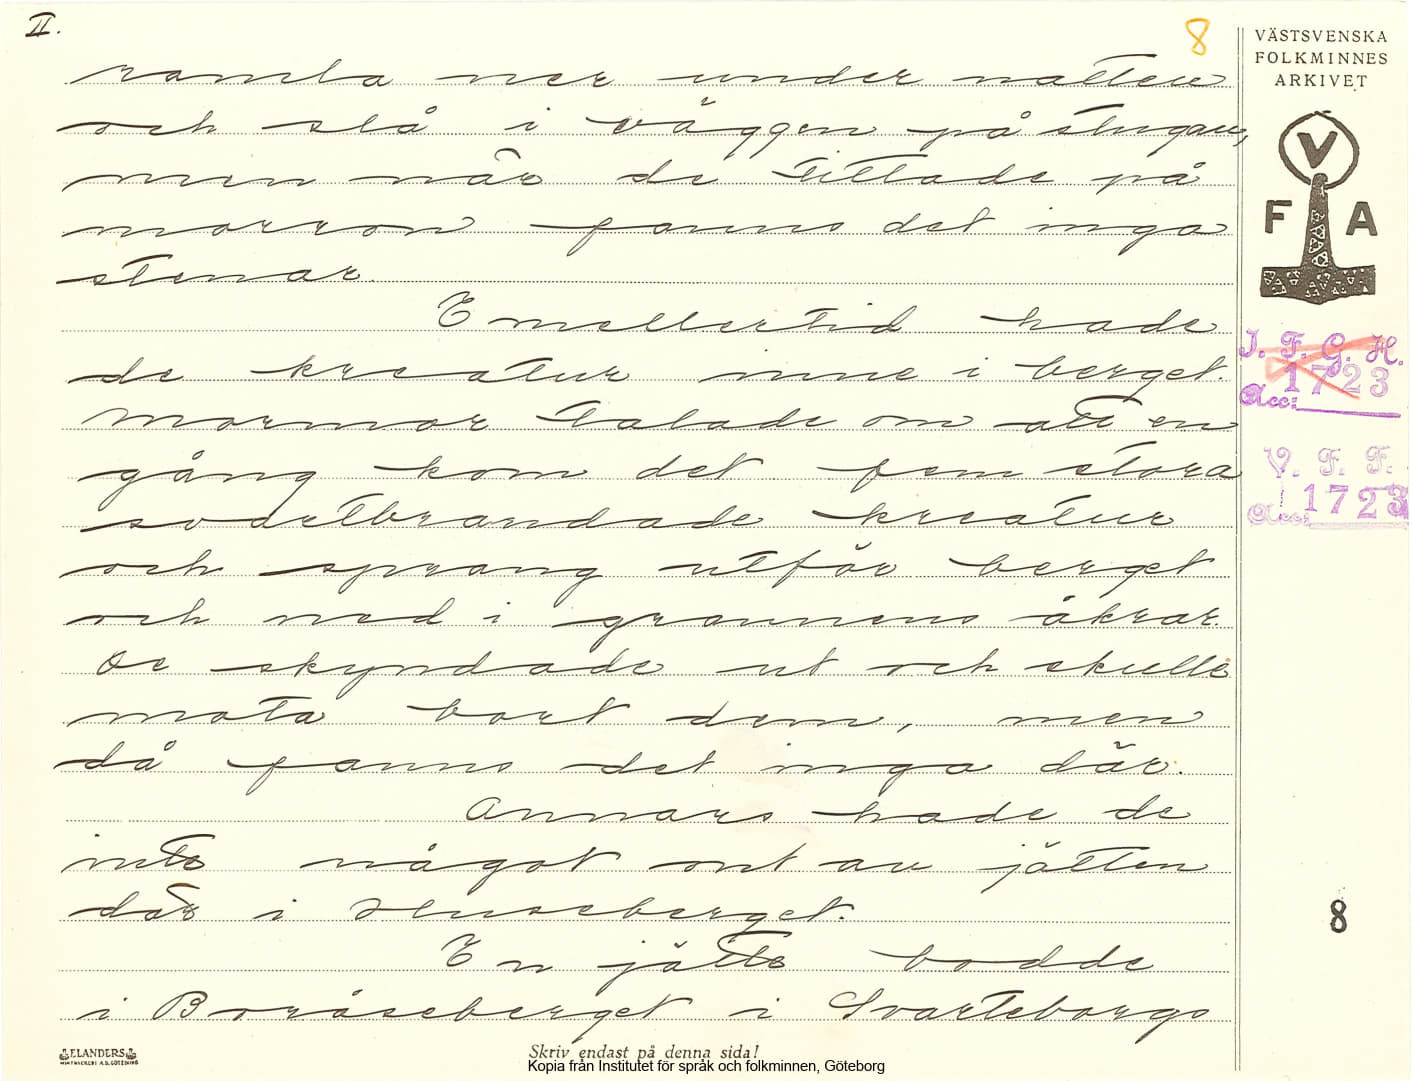 II.
8
VÄSTSVENSKA
FOLKMINNES
ARKIVET
V
F A
I. F. G. H.
1723
Acc:
V. F. F.
Acc: 1723
ramla ner under natten
och slå i väggen på stugan,
men när de tittade på
morron fanns det inga
stenar.
Emellertid hade
de kreatur inne i berget.
Mormor talade om att en
gång kom det fem stora
svartbrandade kreatur
och sprang utför berget
och ned i grannens åkrar.
De skyndade ut och skulle
mota bort dem, men
då fanns det inga där.
Annars hade de
inte något ont av jätten
där i Huseberget.
En jätte bodde
i Boråseberget i Svarteborgs
8
ELANDERS
Skriv endast på denna sida!
Kopia från Institutet för språk och folkminnen, Göteborg